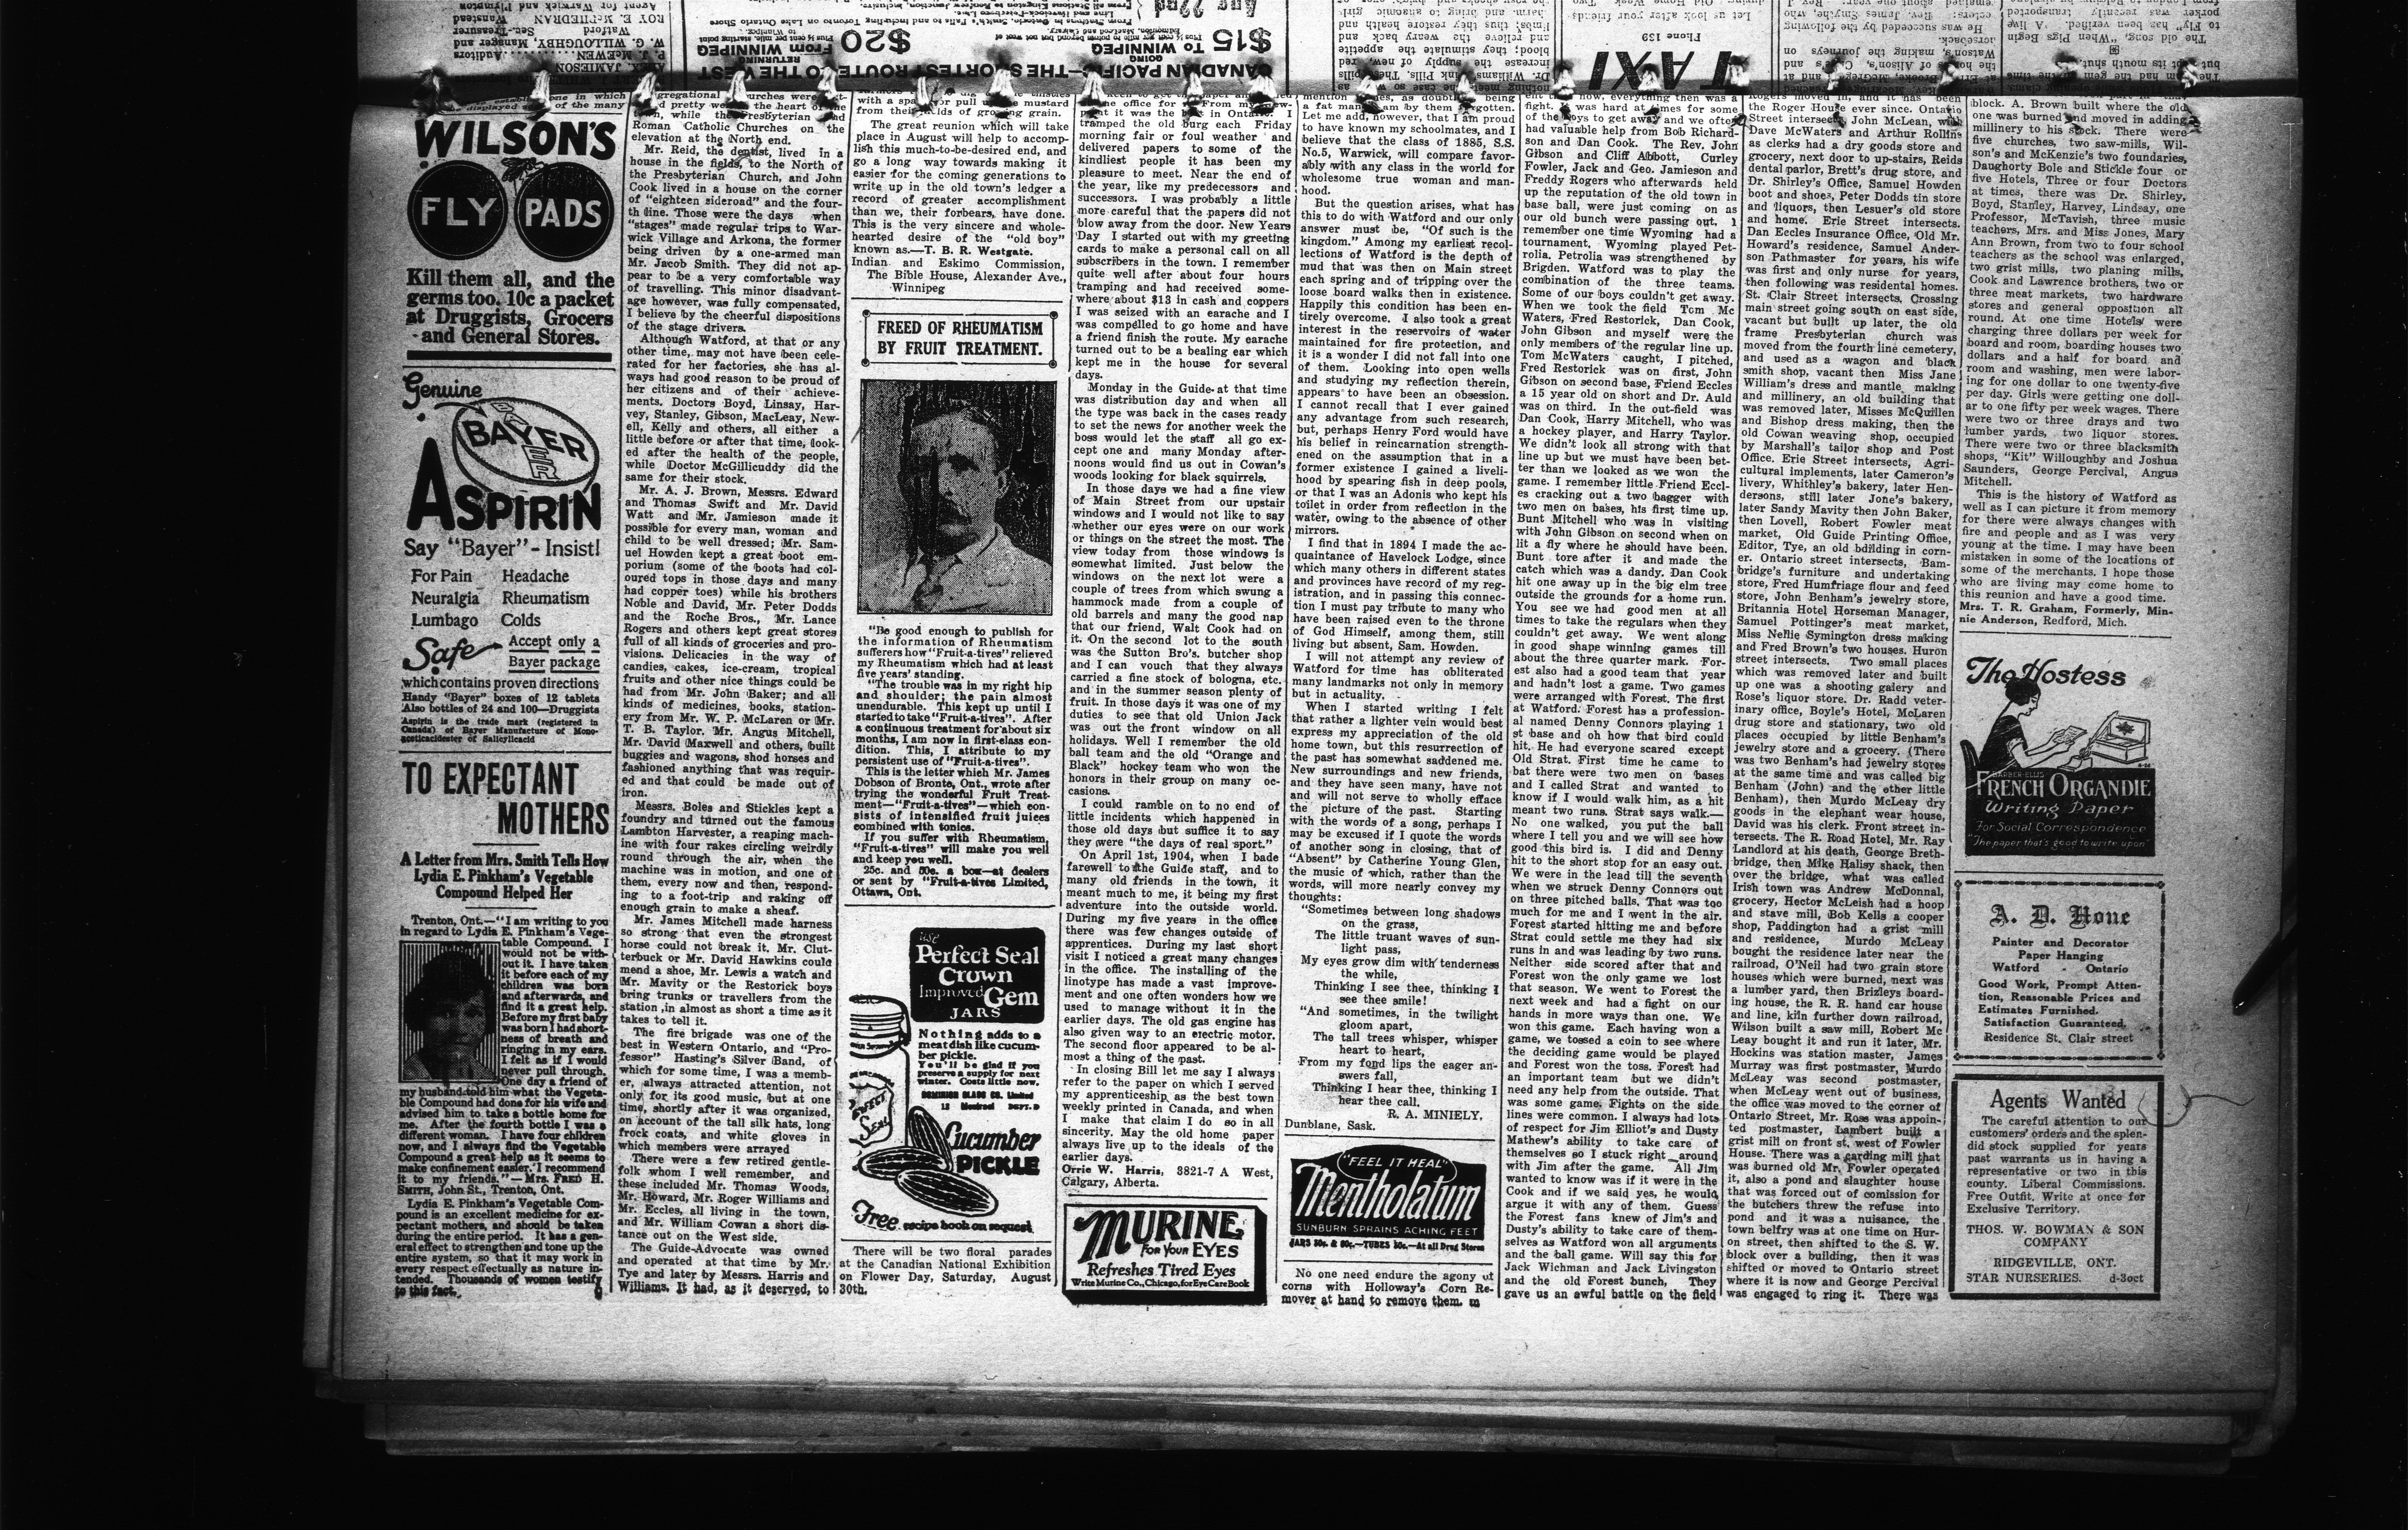 WILSON'S
FLY PADS
Kill them all, and the
germs too. 10c a packet
at Druggists, Grocers
and General Stores.
Genuine
BAYER
ASPIRIN
Say "Bayer" - Insist!
For Pain Headache
Neuralgia Rheumatism
Lumbago Colds
Safe Accept only a
Bayer package
which contains proven directions
Handy "Bayer" boxes of 12 tablets
Also bottles of 24 and 100—Druggists
Aspirin is the trade mark (registered in
Canada) of Bayer Manufacture of Mono-
aceticacidester of Salicylicacid
TO EXPECTANT
MOTHERS
A Letter from Mrs. Smith Tells How
Lydia E. Pinkham's Vegetable
Compound Helped Her
Trenton, Ont.—"I am writing to you
in regard to Lydia E. Pinkham's Vege-
table Compound. I
would not be with-
out it. I have taken
it before each of my
children was born
and afterwards, and
find it a great help.
Before my first baby
was born I had short-
ness of breath and
ringing in my ears.
I felt as if I would
never pull through.
One day a friend of
my husband told him what the Vegeta-
ble Compound had done for his wife and
advised him to take a bottle home for
me. After the fourth bottle I was a
different woman. I have four children
now, and I always find the Vegetable
Compound a great help as it seems to
make confinement easier. I recommend
it to my friends."—Mrs. FRED H.
SMITH, John St., Trenton, Ont.
Lydia E. Pinkham's Vegetable Com-
pound is an excellent medicine for ex-
pectant mothers, and should be taken
during the entire period. It has a gen-
eral effect to strengthen and tone up the
entire system, so that it may work in
every respect effectually as nature in-
tended. Thousands of women testify
to this fact.
Roman Catholic Churches on the
elevation at the North end.
Mr. Reid, the dentist, lived in a
house in the fields, to the North of
the Presbyterian Church, and John
Cook lived in a house on the corner
of "eighteen sideroad" and the four-
th line. Those were the days when
"stages" made regular trips to War-
wick Village and Arkona, the former
being driven by a one-armed man
Mr. Jacob Smith. They did not ap-
pear to be a very comfortable way
of travelling. This minor disadvant-
age however, was fully compensated,
I believe by the cheerful dispositions
of the stage drivers.
Although Watford, at that or any
other time, may not have been cele-
rated for her factories, she has al-
ways had good reason to be proud of
her citizens and of their achieve-
ments. Doctors Boyd, Linsay, Har-
vey, Stanley, Gibson, MacLeay, New-
ell, Kelly and others, all either a
little before or after that time, look-
ed after the health of the people,
while Doctor McGillicuddy did the
same for their stock.
Mr. A. J. Brown, Messrs. Edward
and Thomas Swift and Mr. David
Watt and Mr. Jamieson made it
possible for every man, woman and
child to be well dressed; Mr. Sam-
uel Howden kept a great boot em-
porium (some of the boots had col-
oured tops in those days and many
had copper toes) while his brothers
Noble and David, Mr. Peter Dodds
and the Roche Bros., Mr. Lance
Rogers and others kept great stores
full of all kinds of groceries and pro-
visions. Delicacies in the way of
candies, cakes, ice-cream, tropical
fruits and other nice things could be
had from Mr. John Baker; and all
kinds of medicines, books, station-
ery from Mr. W. P. McLaren or Mr.
T. B. Taylor. Mr. Angus Mitchell,
Mr. David Maxwell and others, built
buggies and wagons, shod horses and
fashioned anything that was requir-
ed and that could be made out of
iron.
Messrs. Boles and Stickles kept a
foundry and turned out the famous
Lambton Harvester, a reaping mach-
ine with four rakes circling weirdly
round through the air, when the
machine was in motion, and one of
them, every now and then, respond-
ing to a foot-trip and raking off
enough grain to make a sheaf.
Mr. James Mitchell made harness
so strong that even the strongest
horse could not break it. Mr. Clut-
terbuck or Mr. David Hawkins could
mend a shoe, Mr. Lewis a watch and
Mr. Mavity or the Restorick boys
bring trunks or travellers from the
station ,in almost as short a time as it
takes to tell it.
The fire brigade was one of the
best in Western Ontario, and "Pro-
fessor" Hasting's Silver Band, of
which for some time, I was a memb-
er, always attracted attention, not
only for its good music, but at one
time, shortly after it was organized,
on account of the tall silk hats, long
frock coats, and white gloves in
which members were arrayed
There were a few retired gentle-
folk whom I well remember, and
these included Mr. Thomas Woods,
Mr. Howard, Mr. Roger Williams and
Mr. Eccles, all living in the town,
and Mr. William Cowan a short dis-
tance out on the West side.
The Guide-Advocate was owned
and operated at that time by Mr.
Tye and later by Messrs. Harris and
Williams. It had, as it deserved, to
The great reunion which will take
place in August will help to accomp-
lish this much-to-be-desired end, and
go a long way towards making it
easier for the coming generations to
write up in the old town's ledger a
record of greater accomplishment
than we, their forbears, have done.
This is the very sincere and whole-
hearted desire of the "old boy"
known as.—T. B. R. Westgate.
Indian and Eskimo Commission,
The Bible House, Alexander Ave.,
Winnipeg
FREED OF RHEUMATISM
BY FRUIT TREATMENT.
"Be good enough to publish for
the information of Rheumatism
sufferers how "Fruit-a-tives" relieved
my Rheumatism which had at least
five years' standing.
"The trouble was in my right hip
and shoulder; the pain almost
unendurable. This kept up until I
started to take "Fruit-a-tives". After
a continuous treatment for about six
months, I am now in first-class con-
dition. This, I attribute to my
persistent use of "Fruit-a-tives".
This is the letter which Mr. James
Dobson of Bronte, Ont., wrote after
trying the wonderful Fruit Treat-
ment—"Fruit-a-tives"—which con-
sists of intensified fruit juices
combined with tonics.
If you suffer with Rheumatism,
"Fruit-a-tives" will make you well
and keep you well.
25c. and 50c. a box—at dealers
or sent by "Fruit-a-tives Limited,
Ottawa, Ont.
use
Perfect Seal
Crown
Improved Gem
JARS
Nothing adds to a
meat dish like cucum-
ber pickle.
You'll be glad if you
preserve a supply for next
winter. Costs little now.
DOMINION GLASS CO. Limited
Montreal DEPT. D
SWEET
Cucumber
PICKLE
Free recipe book on request
There will be two floral parades
at the Canadian National Exhibition
on Flower Day, Saturday, August
30th.
tramped the old burg each Friday
morning fair or foul weather and
delivered papers to some of the
kindliest people it has been my
pleasure to meet. Near the end of
the year, like my predecessors and
successors. I was probably a little
more careful that the papers did not
blow away from the door. New Years
Day I started out with my greeting
cards to make a personal call on all
subscribers in the town. I remember
quite well after about four hours
tramping and had received some-
where about $13 in cash and coppers
I was seized with an earache and I
was compelled to go home and have
a friend finish the route. My earache
turned out to be a bealing ear which
kept me in the house for several
days.
Monday in the Guide at that time
was distribution day and when all
the type was back in the cases ready
to set the news for another week the
boss would let the staff all go ex-
cept one and many Monday after-
noons would find us out in Cowan's
woods looking for black squirrels.
In those days we had a fine view
of Main Street from our upstair
windows and I would not like to say
whether our eyes were on our work
or things on the street the most. The
view today from those windows is
somewhat limited. Just below the
windows on the next lot were a
couple of trees from which swung a
hammock made from a couple of
old barrels and many the good nap
that our friend, Walt Cook had on
it. On the second lot to the south
was the Sutton Bro's. butcher shop
and I can vouch that they always
carried a fine stock of bologna, etc.
and in the summer season plenty of
fruit. In those days it was one of my
duties to see that old Union Jack
was out the front window on all
holidays. Well I remember the old
ball team and the old "Orange and
Black" hockey team who won the
honors in their group on many oc-
casions.
I could ramble on to no end of
little incidents which happened in
those old days but suffice it to say
they were "the days of real sport."
On April 1st, 1904, when I bade
farewell to the Guide staff, and to
many old friends in the town, it
meant much to me, it being my first
adventure into the outside world.
During my five years in the office
there was few changes outside of
apprentices. During my last short
visit I noticed a great many changes
in the office. The installing of the
linotype has made a vast improve-
ment and one often wonders how we
used to manage without it in the
earlier days. The old gas engine has
also given way to an electric motor.
The second floor appeared to be al-
most a thing of the past.
In closing Bill let me say I always
refer to the paper on which I served
my apprenticeship as the best town
weekly printed in Canada, and when
I make that claim I do so in all
sincerity. May the old home paper
always live up to the ideals of the
earlier days.
Orrie W. Harris, 3821-7 A West,
Calgary, Alberta.
MURINE
FOR YOUR EYES
Refreshes Tired Eyes
Write Murine Co., Chicago, for Eye Care Book
Let me add, however, that I am proud
to have known my schoolmates, and I
believe that the class of 1885, S.S.
No.5, Warwick, will compare favor-
ably with any class in the world for
wholesome true woman and man-
hood.
But the question arises, what has
this to do with Watford and our only
answer must be, "Of such is the
kingdom." Among my earliest recol-
lections of Watford is the depth of
mud that was then on Main street
each spring and of tripping over the
loose board walks then in existence.
Happily this condition has been en-
tirely overcome. I also took a great
interest in the reservoirs of water
maintained for fire protection, and
it is a wonder I did not fall into one
of them. Looking into open wells
and studying my reflection therein,
appears to have been an obsession.
I cannot recall that I ever gained
any advantage from such research,
but, perhaps Henry Ford would have
his belief in reincarnation strength-
ened on the assumption that in a
former existence I gained a liveli-
hood by spearing fish in deep pools,
or that I was an Adonis who kept his
toilet in order from reflection in the
water, owing to the absence of other
mirrors.
I find that in 1894 I made the ac-
quaintance of Havelock Lodge, since
which many others in different states
and provinces have record of my reg-
istration, and in passing this connec-
tion I must pay tribute to many who
have been raised even to the throne
of God Himself, among them, still
living but absent, Sam. Howden.
I will not attempt any review of
Watford for time has obliterated
many landmarks not only in memory
but in actuality.
When I started writing I felt
that rather a lighter vein would best
express my appreciation of the old
home town, but this resurrection of
the past has somewhat saddened me.
New surroundings and new friends,
and they have seen many, have not
and will not serve to wholly efface
the picture of the past. Starting
with the words of a song, perhaps I
may be excused if I quote the words
of another song in closing, that of
"Absent" by Catherine Young Glen,
the music of which, rather than the
words, will more nearly convey my
thoughts:
"Sometimes between long shadows
on the grass,
The little truant waves of sun-
light pass,
My eyes grow dim with tenderness
the while,
Thinking I see thee, thinking I
see thee smile!
"And sometimes, in the twilight
gloom apart,
The tall trees whisper, whisper
heart to heart,
From my fond lips the eager an-
swers fall,
Thinking I hear thee, thinking I
hear thee call.
R. A. MINIELY.
Dunblane, Sask.
"FEEL IT HEAL"
Mentholatum
SUNBURN SPRAINS ACHING FEET
JARS 30c. & 60c.—TUBES 30c.—At all Drug Stores
No one need endure the agony of
corns with Holloway's Corn Re-
mover at hand to remove them. m
of the boys to get away and we often
had valuable help from Bob Richard-
son and Dan Cook. The Rev. John
Gibson and Cliff Abbott, Curley
Fowler, Jack and Geo. Jamieson and
Freddy Rogers who afterwards held
up the reputation of the old town in
base ball, were just coming on as
our old bunch were passing out. I
remember one time Wyoming had a
tournament. Wyoming played Pet-
rolia. Petrolia was strengthened by
Brigden. Watford was to play the
combination of the three teams.
Some of our boys couldn't get away.
When we took the field Tom Mc
Waters, Fred Restorick, Dan Cook,
John Gibson and myself were the
only members of the regular line up.
Tom McWaters caught, I pitched,
Fred Restorick was on first, John
Gibson on second base, Friend Eccles
a 15 year old on short and Dr. Auld
was on third. In the out-field was
Dan Cook, Harry Mitchell, who was
a hockey player, and Harry Taylor.
We didn't look all strong with that
line up but we must have been bet-
ter than we looked as we won the
game. I remember little Friend Eccl-
es cracking out a two bagger with
two men on bases, his first time up.
Bunt Mitchell who was in visiting
with John Gibson on second when on
lit a fly where he should have been.
Bunt tore after it and made the
catch which was a dandy. Dan Cook
hit one away up in the big elm tree
outside the grounds for a home run.
You see we had good men at all
times to take the regulars when they
couldn't get away. We went along
in good shape winning games till
about the three quarter mark. For-
est also had a good team that year
and hadn't lost a game. Two games
were arranged with Forest. The first
at Watford. Forest has a profession-
al named Denny Connors playing 1
st base and oh how that bird could
hit. He had everyone scared except
Old Strat. First time he came to
bat there were two men on bases
and I called Strat and wanted to
know if I would walk him, as a hit
meant two runs. Strat says walk.—
No one walked, you put the ball
where I tell you and we will see how
good this bird is. I did and Denny
hit to the short stop for an easy out.
We were in the lead till the seventh
when we struck Denny Connors out
on three pitched balls. That was too
much for me and I went in the air.
Forest started hitting me and before
Strat could settle me they had six
runs in and was leading by two runs.
Neither side scored after that and
Forest won the only game we lost
that season. We went to Forest the
next week and had a fight on our
hands in more ways than one. We
won this game. Each having won a
game, we tossed a coin to see where
the deciding game would be played
and Forest won the toss. Forest had
an important team but we didn't
need any help from the outside. That
was some game. Fights on the side
lines were common. I always had lots
of respect for Jim Elliot's and Dusty
Mathew's ability to take care of
themselves so I stuck right around
with Jim after the game. All Jim
wanted to know was if it were in the
Cook and if we said yes, he would
argue it with any of them. Guess
the Forest fans knew of Jim's and
Dusty's ability to take care of them-
selves as Watford won all arguments
and the ball game. Will say this for
Jack Wichman and Jack Livingston
and the old Forest bunch, They
gave us an awful battle on the field
the Roger House ever since. Ontario
Street intersects, John McLean, with
Dave McWaters and Arthur Rollins
as clerks had a dry goods store and
grocery, next door to up-stairs, Reids
dental parlor, Brett's drug store, and
Dr. Shirley's Office, Samuel Howden
boot and shoes, Peter Dodds tin store
and liquors, then Lesuer's old store
and home. Erie Street intersects.
Dan Eccles Insurance Office, Old Mr.
Howard's residence, Samuel Ander-
son Pathmaster for years, his wife
was first and only nurse for years,
then following was residental homes.
St. Clair Street intersects. Crossing
main street going south on east side,
vacant but built up later, the old
frame Presbyterian church was
moved from the fourth line cemetery,
and used as a wagon and black
smith shop, vacant then Miss Jane
William's dress and mantle making
and millinery, an old building that
was removed later, Misses McQuillen
and Bishop dress making, then the
old Cowan weaving shop, occupied
by Marshall's tailor shop and Post
Office. Erie Street intersects, Agri-
cultural implements, later Cameron's
livery, Whithley's bakery, later Hen-
dersons, still later Jone's bakery,
later Sandy Mavity then John Baker,
then Lovell, Robert Fowler meat
market, Old Guide Printing Office,
Editor, Tye, an old building in corn-
er. Ontario street intersects, Bam-
bridge's furniture and undertaking
store, Fred Humfriage flour and feed
store, John Benham's jewelry store,
Britannia Hotel Horseman Manager,
Samuel Pottinger's meat market,
Miss Nellie Symington dress making
and Fred Brown's two houses. Huron
street intersects. Two small places
which was removed later and built
up one was a shooting galery and
Rose's liquor store. Dr. Radd veter-
inary office, Boyle's Hotel, McLaren
drug store and stationary, two old
places occupied by little Benham's
jewelry store and a grocery. (There
was two Benham's had jewelry stores
at the same time and was called big
Benham (John) and the other little
Benham), then Murdo McLeay dry
goods in the elephant wear house,
David was his clerk. Front street in-
tersects. The R. Road Hotel, Mr. Ray
Landlord at his death, George Breth-
bridge, then Mike Halisy shack, then
over the bridge, what was called
Irish town was Andrew McDonnal,
grocery, Hector McLeish had a hoop
and stave mill, Bob Kells a cooper
shop, Paddington had a grist mill
and residence, Murdo McLeay
bought the residence later near the
railroad, O'Neil had two grain store
houses which were burned, next was
a lumber yard, then Brizleys board-
ing house, the R. R. hand car house
and line, kiln further down railroad,
Wilson built a saw mill, Robert Mc
Leay bought it and run it later, Mr.
Hockins was station master, James
Murray was first postmaster, Murdo
McLeay was second postmaster,
when McLeay went out of business,
the office was moved to the corner of
Ontario Street, Mr. Ross was appoin-
ted postmaster, Lambert built a
grist mill on front st. west of Fowler
House. There was a carding mill that
was burned old Mr. Fowler operated
it, also a pond and slaughter house
that was forced out of comission for
the butchers threw the refuse into
pond and it was a nuisance, the
town belfry was at one time on Hur-
on street, then shifted to the S. W.
block over a building, then it was
shifted or moved to Ontario street
where it is now and George Percival
was engaged to ring it. There was
block. A. Brown built where the old
one was burned and moved in adding
millinery to his stock. There were
five churches, two saw-mills, Wil-
son's and McKenzie's two foundaries,
Daughorty Bole and Stickle four or
five Hotels, Three or four Doctors
at times, there was Dr. Shirley,
Boyd, Stanley, Harvey, Lindsay, one
Professor, McTavish, three music
teachers, Mrs. and Miss Jones, Mary
Ann Brown, from two to four school
teachers as the school was enlarged,
two grist mills, two planing mills,
Cook and Lawrence brothers, two or
three meat markets, two hardware
stores and general opposition all
round. At one time Hotels were
charging three dollars per week for
board and room, boarding houses two
dollars and a half for board and
room and washing, men were labor-
ing for one dollar to one twenty-five
per day. Girls were getting one doll-
ar to one fifty per week wages. There
were two or three drays and two
lumber yards, two liquor stores.
There were two or three blacksmith
shops, "Kit" Willoughby and Joshua
Saunders, George Percival, Angus
Mitchell.
This is the history of Watford as
well as I can picture it from memory
for there were always changes with
fire and people and as I was very
young at the time. I may have been
mistaken in some of the locations of
some of the merchants. I hope those
who are living may come home to
this reunion and have a good time.
Mrs. T. R. Graham, Formerly, Min-
nie Anderson, Redford, Mich.
The Hostess
BARBER-ELLIS
FRENCH ORGANDIE
Writing Paper
For Social Correspondence
"The paper that's good to write upon"
A. D. Hone
Painter and Decorator
Paper Hanging
Watford - Ontario
Good Work, Prompt Atten-
tion, Reasonable Prices and
Estimates Furnished.
Satisfaction Guaranteed.
Residence St. Clair street
Agents Wanted
The careful attention to our
customers' orders and the splen-
did stock supplied for years
past warrants us in having a
representative or two in this
county. Liberal Commissions.
Free Outfit. Write at once for
Exclusive Territory.
THOS. W. BOWMAN & SON
COMPANY
RIDGEVILLE, ONT.
STAR NURSERIES. d-3oct
CANADIAN PACIFIC—THE SHORTEST ROUTE TO THE WEST
GOING
$15 TO WINNIPEG
RETURNING
$20 From WINNIPEG
TAXI
Phone 139